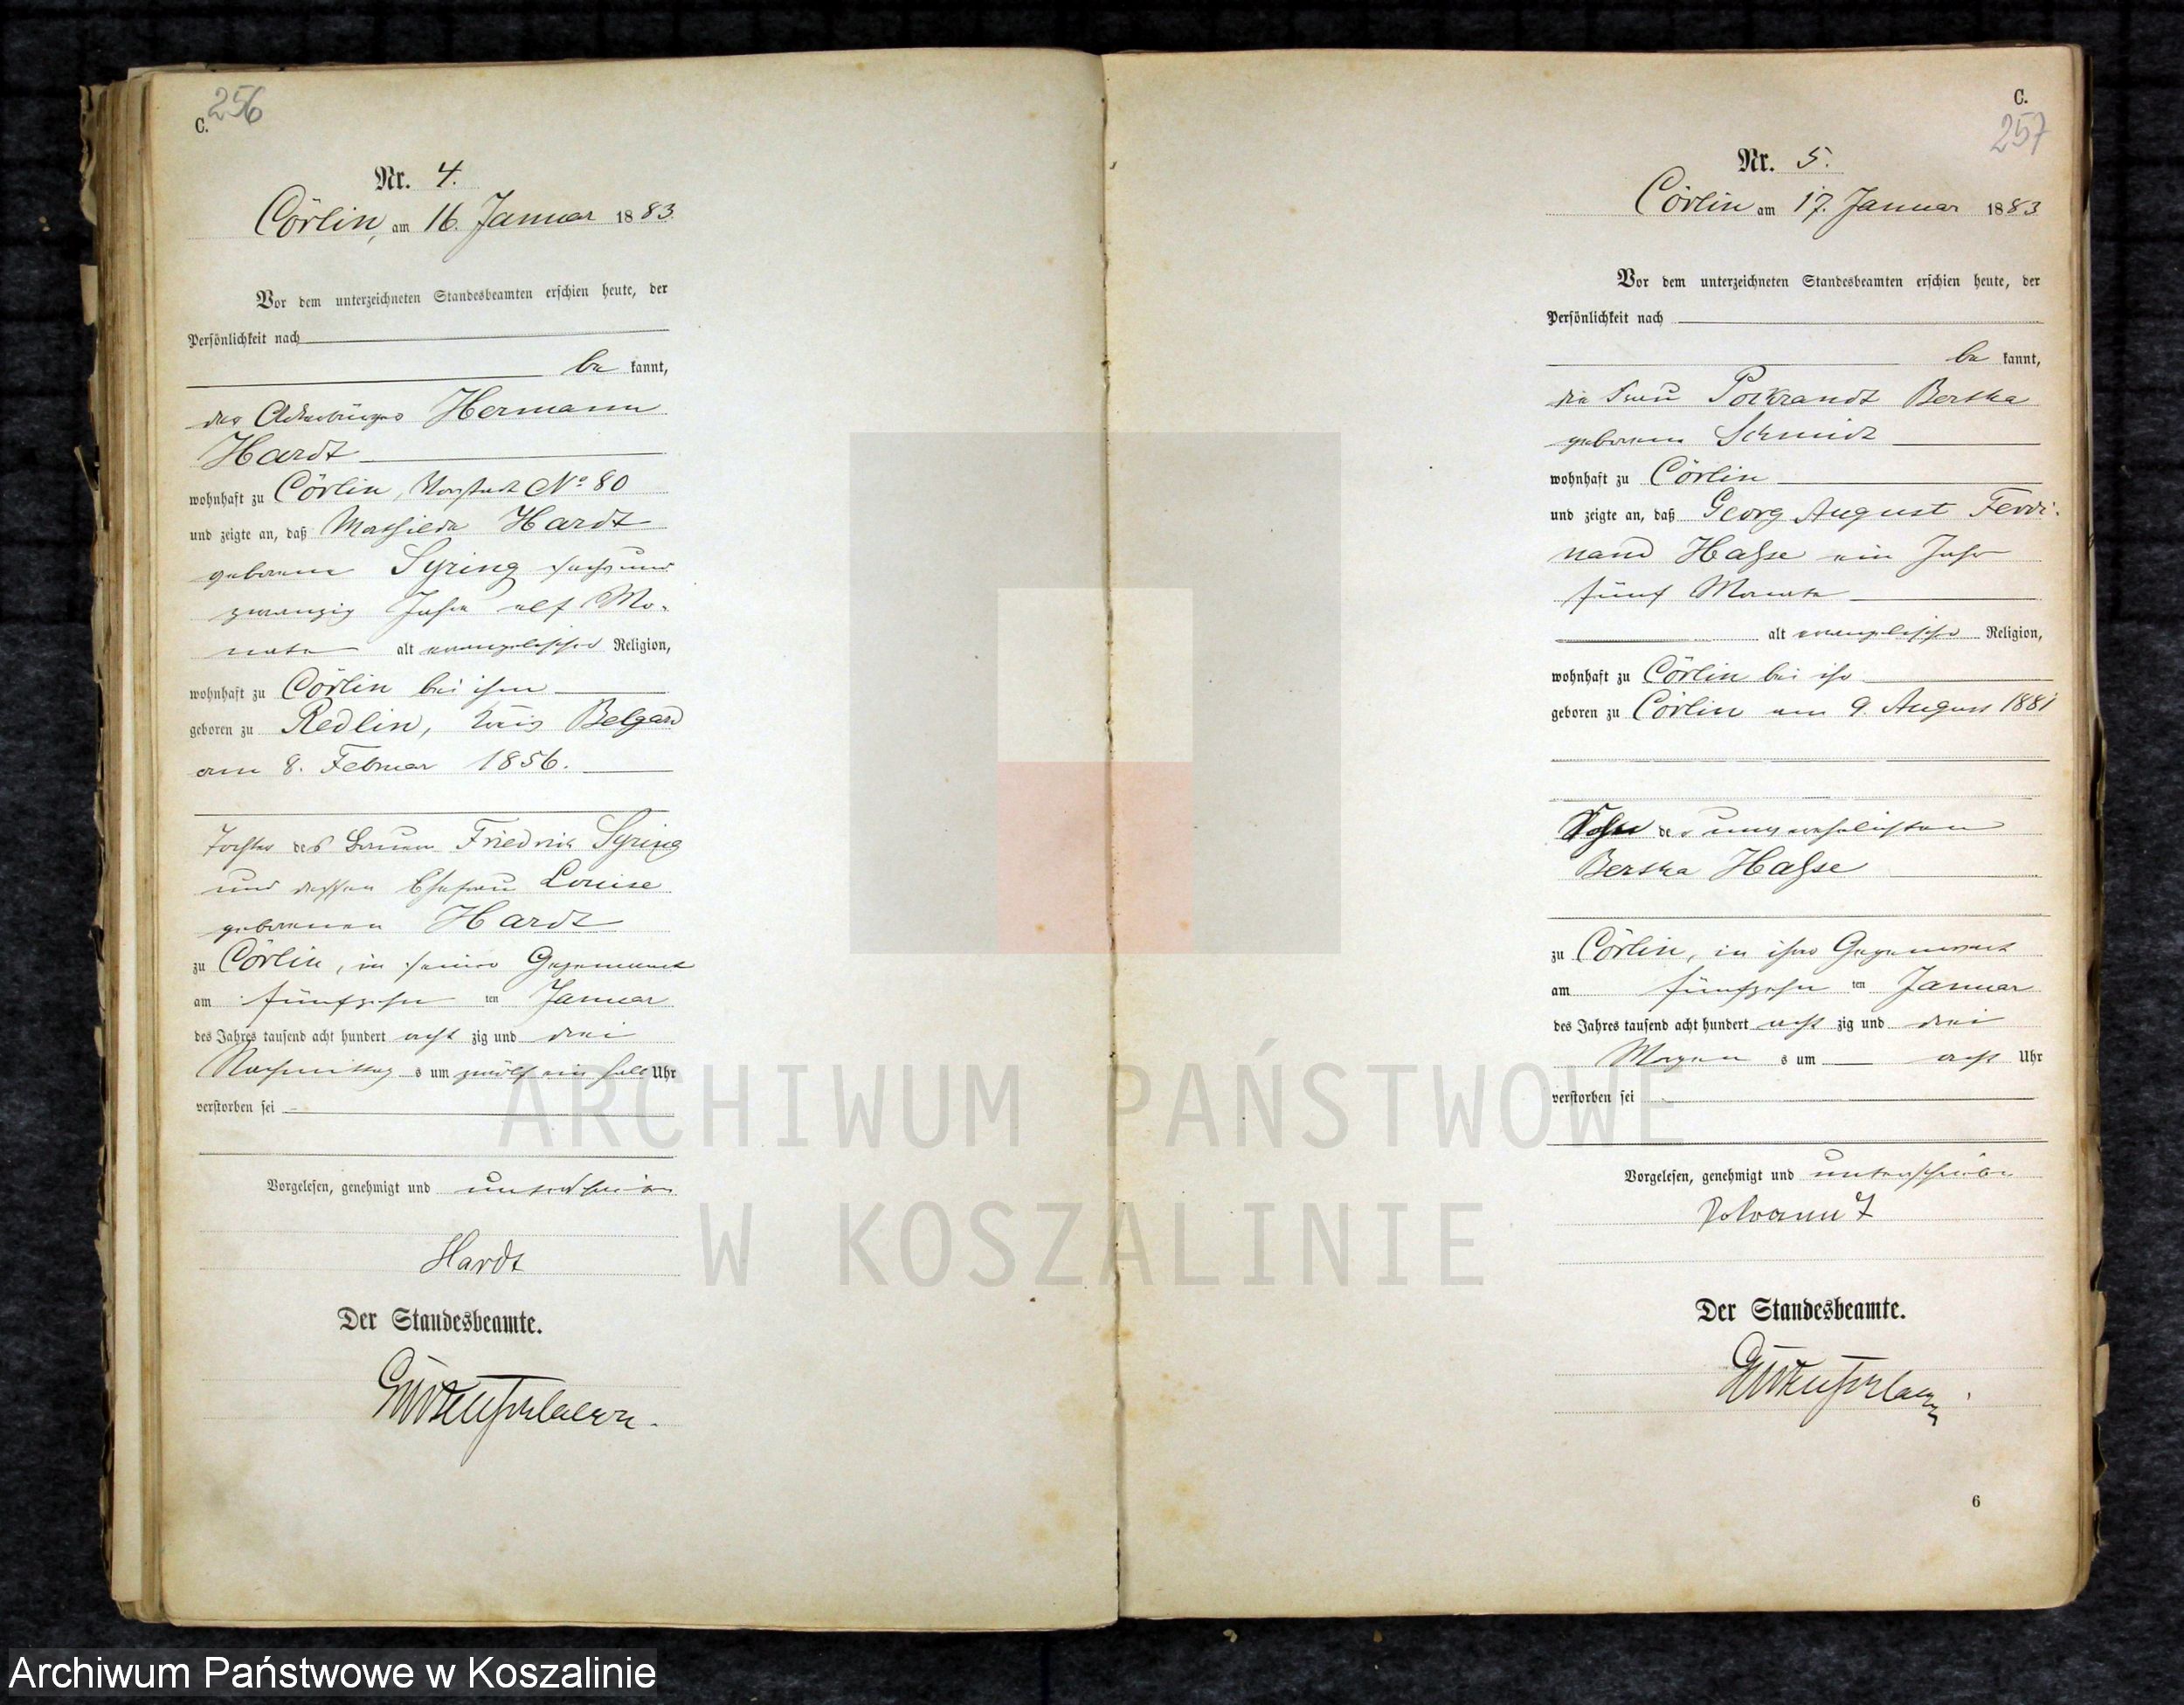 256
C.
Nr. 4.
Cörlin, am 16. Januar 1883
Vor dem unterzeichneten Standesbeamten erschien heute, der
Persönlichkeit nach
be kannt,
der Ackerbürger Hermann
Hardt
wohnhaft zu Cörlin, Vorstadt No 80
und zeigte an, daß Mathilde Hardt
geborene Syring sechsund
zwanzig Jahre elf Mo-
nate alt evangelischer Religion,
wohnhaft zu Cörlin bei ihm
geboren zu Redlin, Kreis Belgard
am 8. Februar 1856.
Tochter des Bauern Friedrich Syring
und dessen Ehefrau Louise
geborenen Hardt
zu Cörlin, in seiner Gegenwart
am fünfzehn ten Januar
des Jahres tausend acht hundert acht zig und drei
Nachmittag s um zwölf ein halb Uhr
verstorben sei
Vorgelesen, genehmigt und unterschrieben
Hardt
Der Standesbeamte.
C.
257
Nr. 5.
Cörlin am 17. Januar 1883
Vor dem unterzeichneten Standesbeamten erschien heute, der
Persönlichkeit nach
be kannt,
die Frau Pockrandt Bertha
geborene Schmidt
wohnhaft zu Cörlin
und zeigte an, daß Georg August Ferdi-
nand Haße ein Jahr
fünf Monate
alt evangelischer Religion,
wohnhaft zu Cörlin bei ihr
geboren zu Cörlin am 9. August 1881
Sohn der unverehelichten
Bertha Haße
zu Cörlin, in ihrer Gegenwart
am fünfzehn ten Januar
des Jahres tausend acht hundert acht zig und drei
Morgen s um acht Uhr
verstorben sei
Vorgelesen, genehmigt und unterschrieben
Der Standesbeamte.
6
ARCHIWUM PAŃSTWOWE
W KOSZALINIE
Archiwum Państwowe w Koszalinie